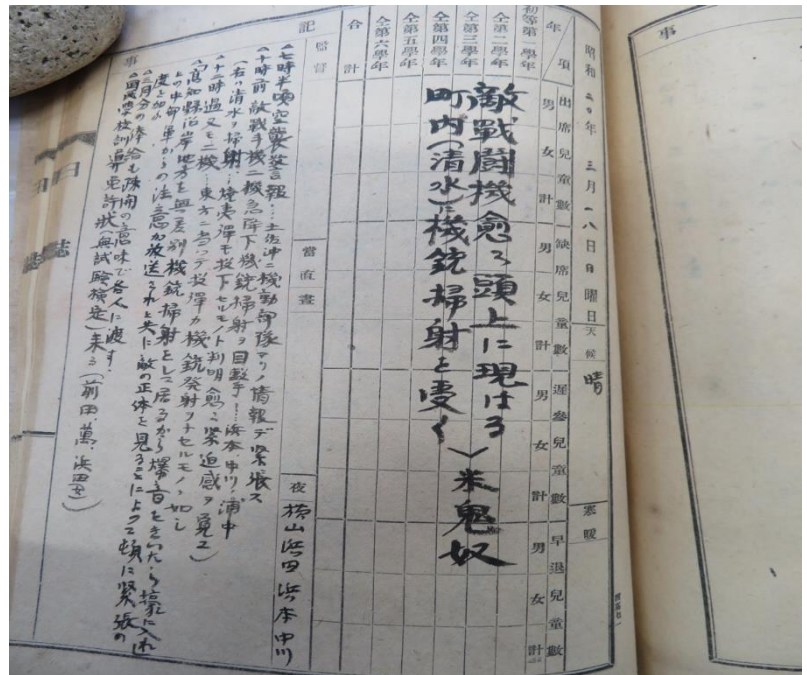 事
昭和二〇年 三月 一八日 日曜日 天候 晴 寒暖
年 項 出席兒童數 缺席兒童數 遲參兒童數 早退兒童數
男 女 計 男 女 計 男 女 計 男 女 計
初等第一學年
仝第二學年
仝第三學年
仝第四學年
仝第五學年
仝第六學年
合計
敵戰闘機愈々頭上に現はる 米鬼奴
町内(清水)に機銃掃射を受く
記
監督 當直 晝 夜 横山 浜田 浜本 中川
△七時半頃空襲警報…土佐沖ニ機動部隊アリノ情報デ緊張ス
△十時前敵戦斗機二機急降下機銃掃射ヲ目撃ス…浜本中川ノ浦中
(右ハ清水ヲ掃射…焼夷弾モ投下セルモノト判明愈々緊迫感ヲ覚エ)
△十二時過又モ二機、東方ニ当ッテ投弾カ機銃発射ヲナセルモノヽ如シ
(高知縣沿岸地方を無差別機銃掃射をして居るから爆音をきいたら壕に入れ
との中部軍からの注意が放送されと共に敵の正体を見ることによって頓に緊張の
度を加ふ
△三月分の俸給も疎開の意味で各人に渡す.
△国民学校訓導免許状(無試験検定)来る(前田、萬、浜田
事
日
誌